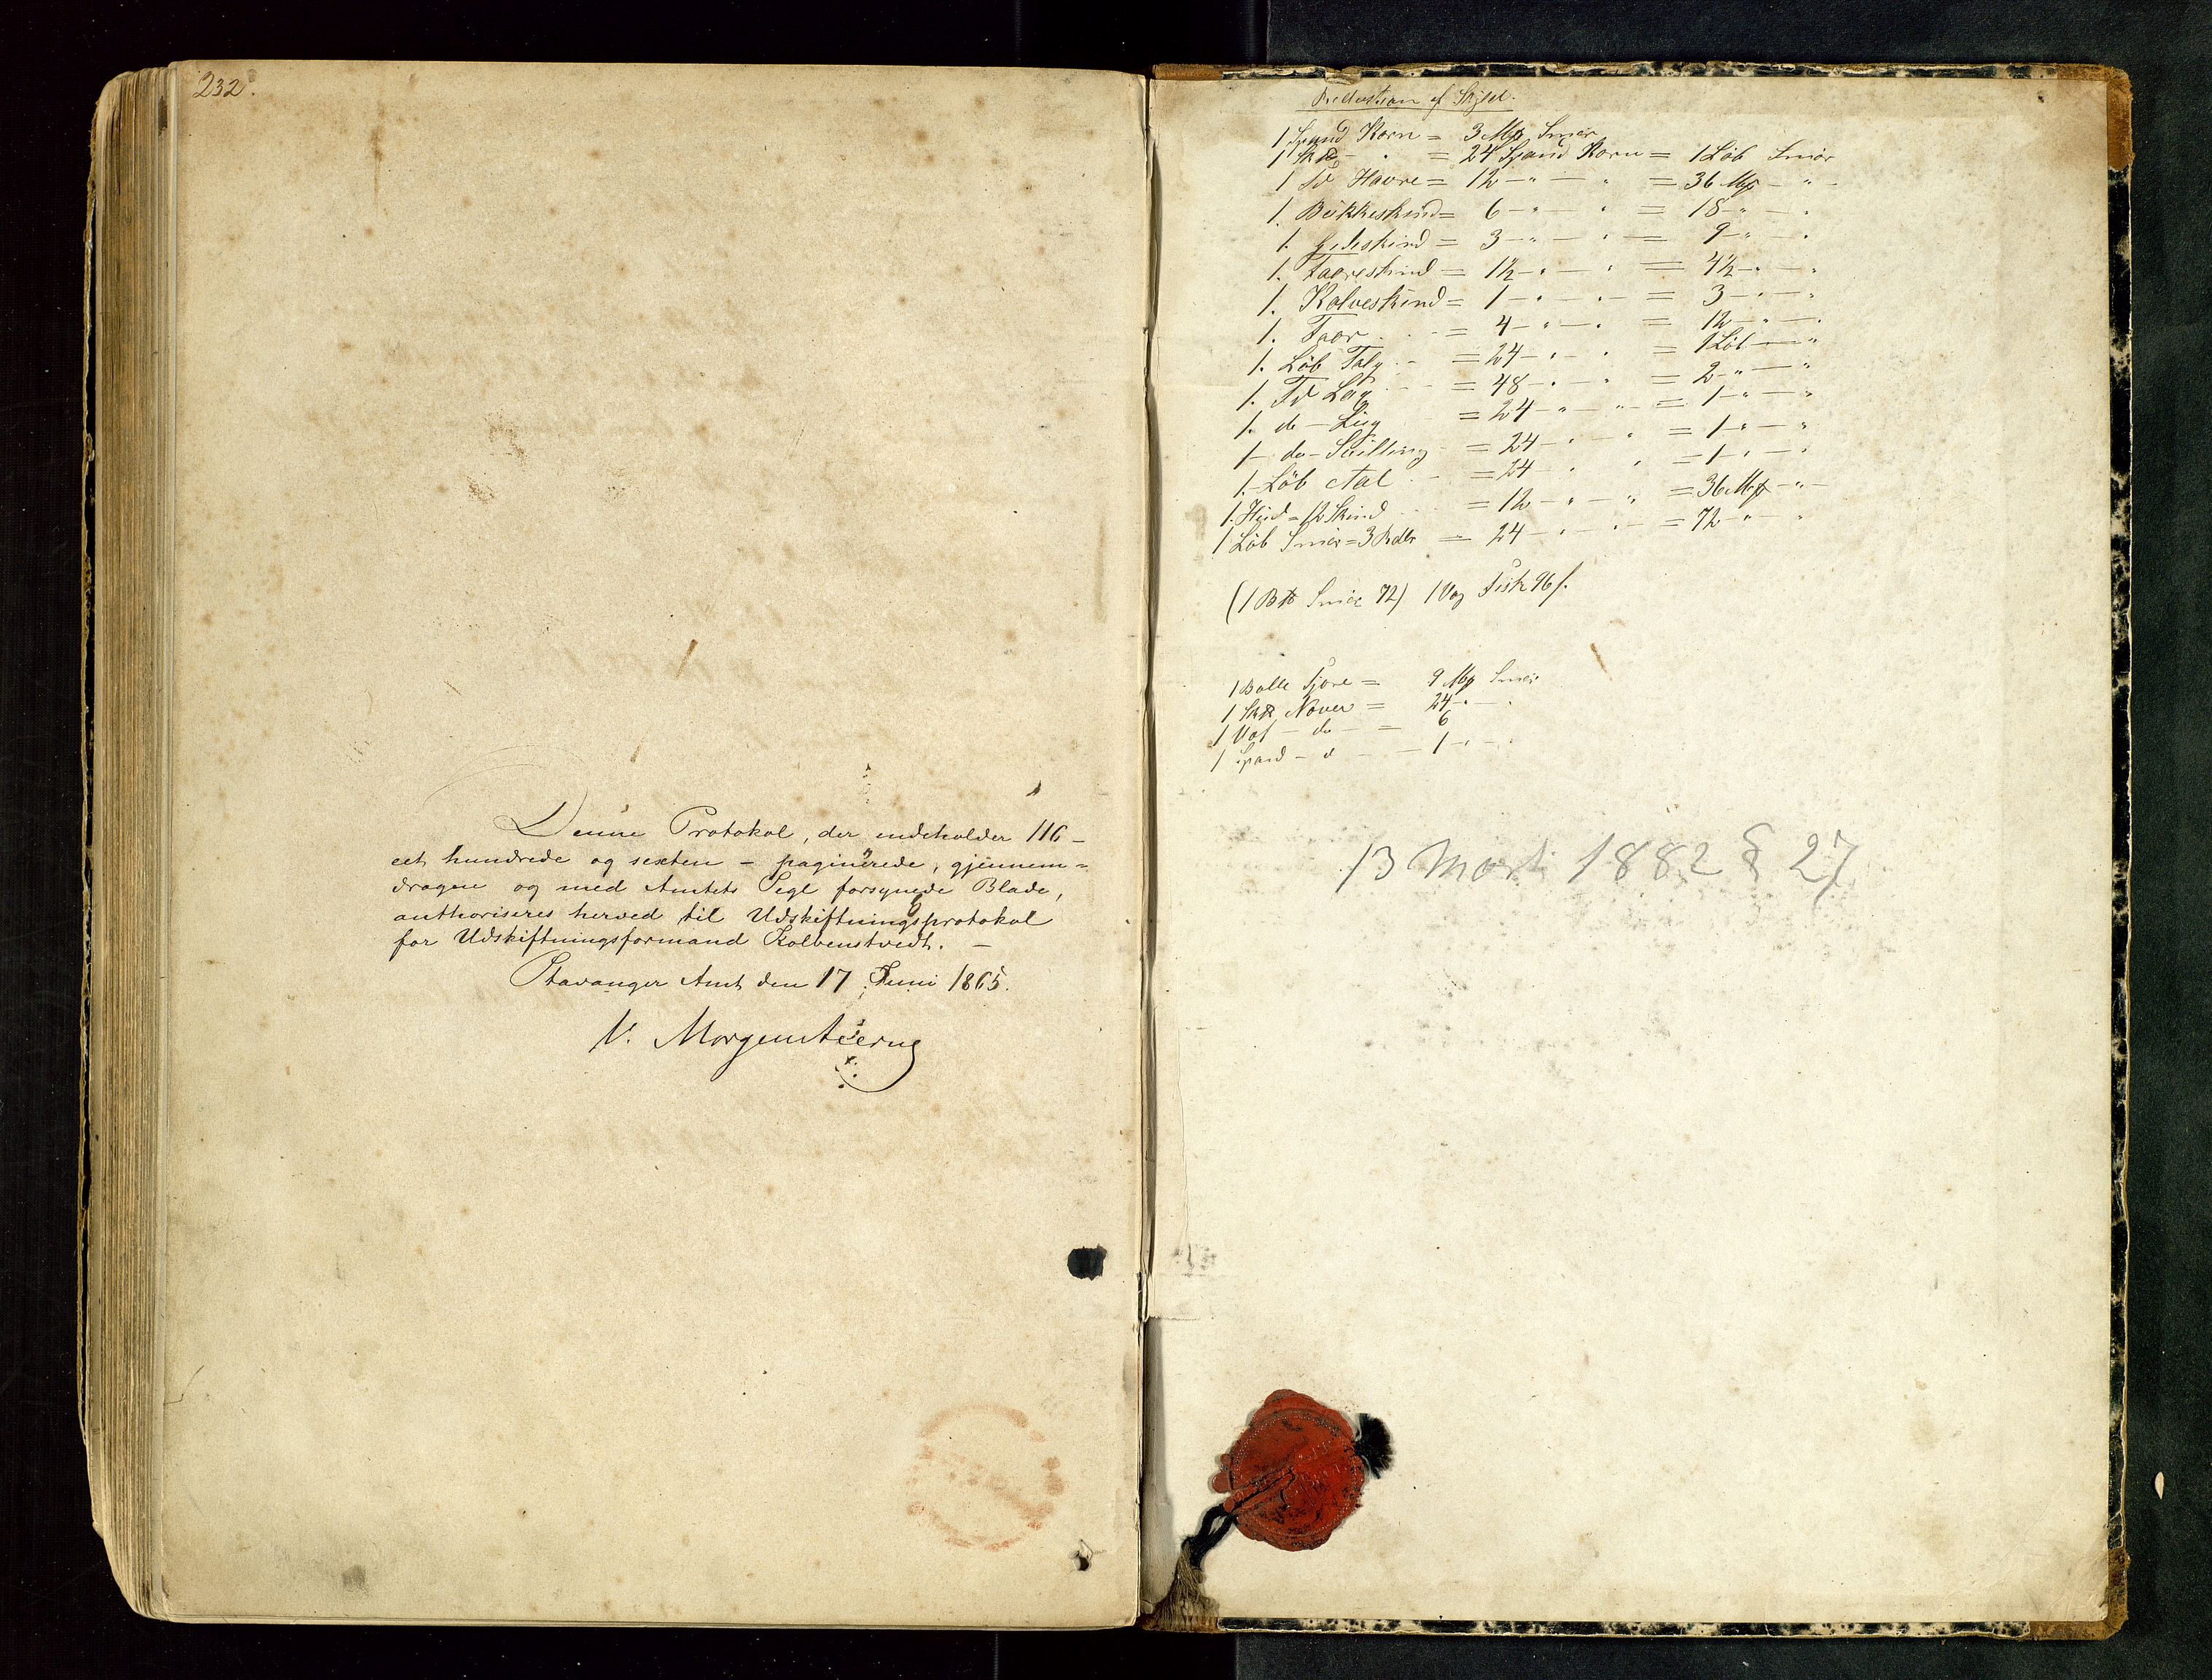 232.
Denne Protokol, der indeholder 116 –
eet hundrede og sexten – paginerede, gjennem=
dragne og med Amtets Segl forsynede Blade,
authoriseres herved til Udskiftningsprotokol
for Udskiftningsformand Kolbenstvedt. –
Stavanger Amt den 17 Juni 1865.
V. Morgenstierne
Reduction af Skyld.
1 Spand Korn = 3 Mk Smør
1 Sk℔ - " = 24 Spand Korn = 1 Løb Smør
1 Td Havre = 12 - " - " = 36 Mk - " -
1. Bukkeskind = 6 - " - " = 18 - " - "
1. Gedeskind = 3 - " - " = 9 - " - "
1. Faareskind = 1½ - " - " = 4½ - " - "
1. Kalveskind = 1 - " - " - = 3 - " - "
1. Faar - = 4 - " - " = 12 - " - "
1. Løb Talg - = 24 - " - " = 1 Løb - "
1. Td Lax - = 48 - " - " = 2 - " - "
1. do - = 24 - " - " = 1 - " - "
1 - do - = 24 - " - " = 1 - " - "
1. Løb Aal - = 24 " " = 1 - " - "
1. Hud = 12 Skind = 12 - " - " = 36 Mk - " -
1 Løb Smør = 3 Rdlr = 24 - " - " - = 72 - " "
(1 B℔ Smør 72) 1 Vog Fisk 96 s.
1 Bolle Tjære = 9 Mk Smør
1 Sk℔ Næver = 24 - " - "
1 Vog - do - = 6
1 Spand - d - - 1 - " - "
13 Mart 1882 § 27